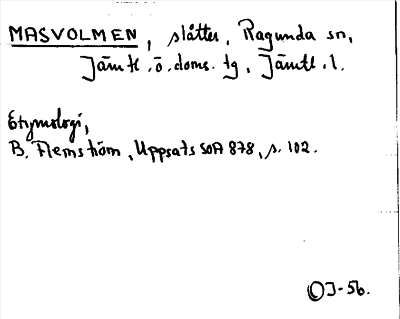 MASVOLMEN, slåtter, Ragunda sn,
Jämtl. ö. doms. tg, Jämtl. l.
Etymologi,
B. Flemström, Uppsats SOA 878, s. 102.
OJ-56.